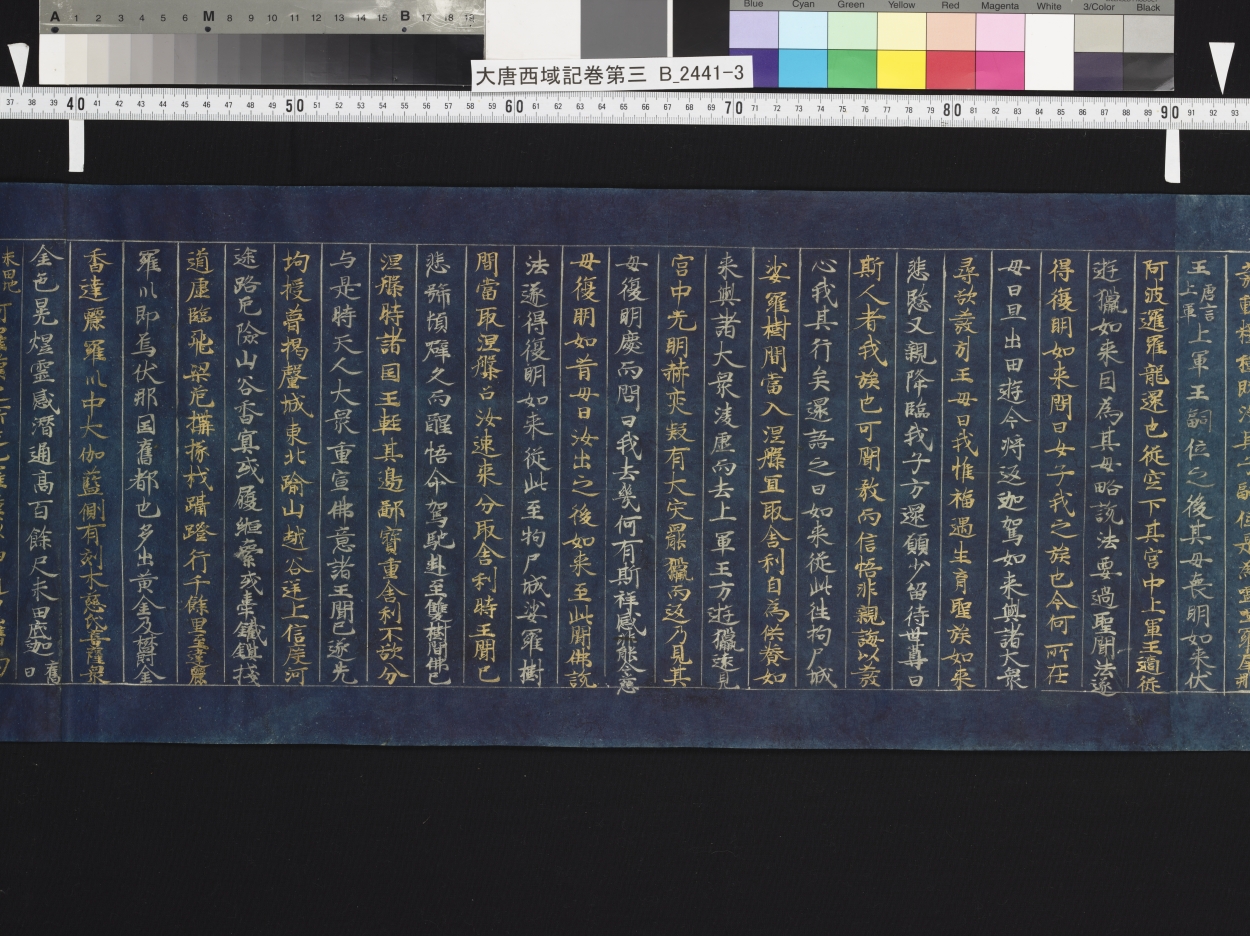 大唐西域記巻第三 B_2441-3
Blue Cyan Green Yellow Red Magenta White 3/Color Black
王唐言上軍上軍王嗣位之後其母喪明如来伏
阿波邏羅龍還也従空下其宮中上軍王適従
遊獵如来因為其母略説法要過聖聞法遂
得復明如来問曰女子我之族也今何所在
母曰旦出田遊今将返迦駕如来與諸大衆
尋欲發引王母曰我惟福遇生育聖族如来
悲愍又親降臨我子方還願少留待世尊曰
斯人者我族也可聞教而信悟非親誨以發
心我其行矣還語之曰如来従此往拘尸城
娑羅樹間當入涅槃宜取舎利自為供養如
来與諸大衆凌虚而去上軍王方遊獵遠見
宮中光明赫奕疑有大灾罷獵而返乃見其
母復明慶而問曰我去幾何有斯祥感能令慈
母復明如昔母曰汝出之後如来至此聞佛説
法遂得復明如来従此至拘尸城娑羅樹
間當取涅槃召汝速来分取舎利時王聞已
悲號傾擗久而醒悟命駕馳赴至雙樹間佛已
涅槃時諸国王輕其邊鄙寶重舎利不欲分
与是時天人大衆重宣佛意諸王聞已遂先
均授瞢揭釐城東北踰山越谷逆上信度河
途路危険山谷杳冥或履縆索或牽鐵鎖棧
道虚臨飛梁危搆椽杙躡蹬行千餘里至達麗
羅川即烏伏那国舊都也多出黄金及欝金
香達麗羅川中大伽藍側有刻木慈氏菩薩像
金色晃煜靈感潜通高百餘尺末田底迦舊曰